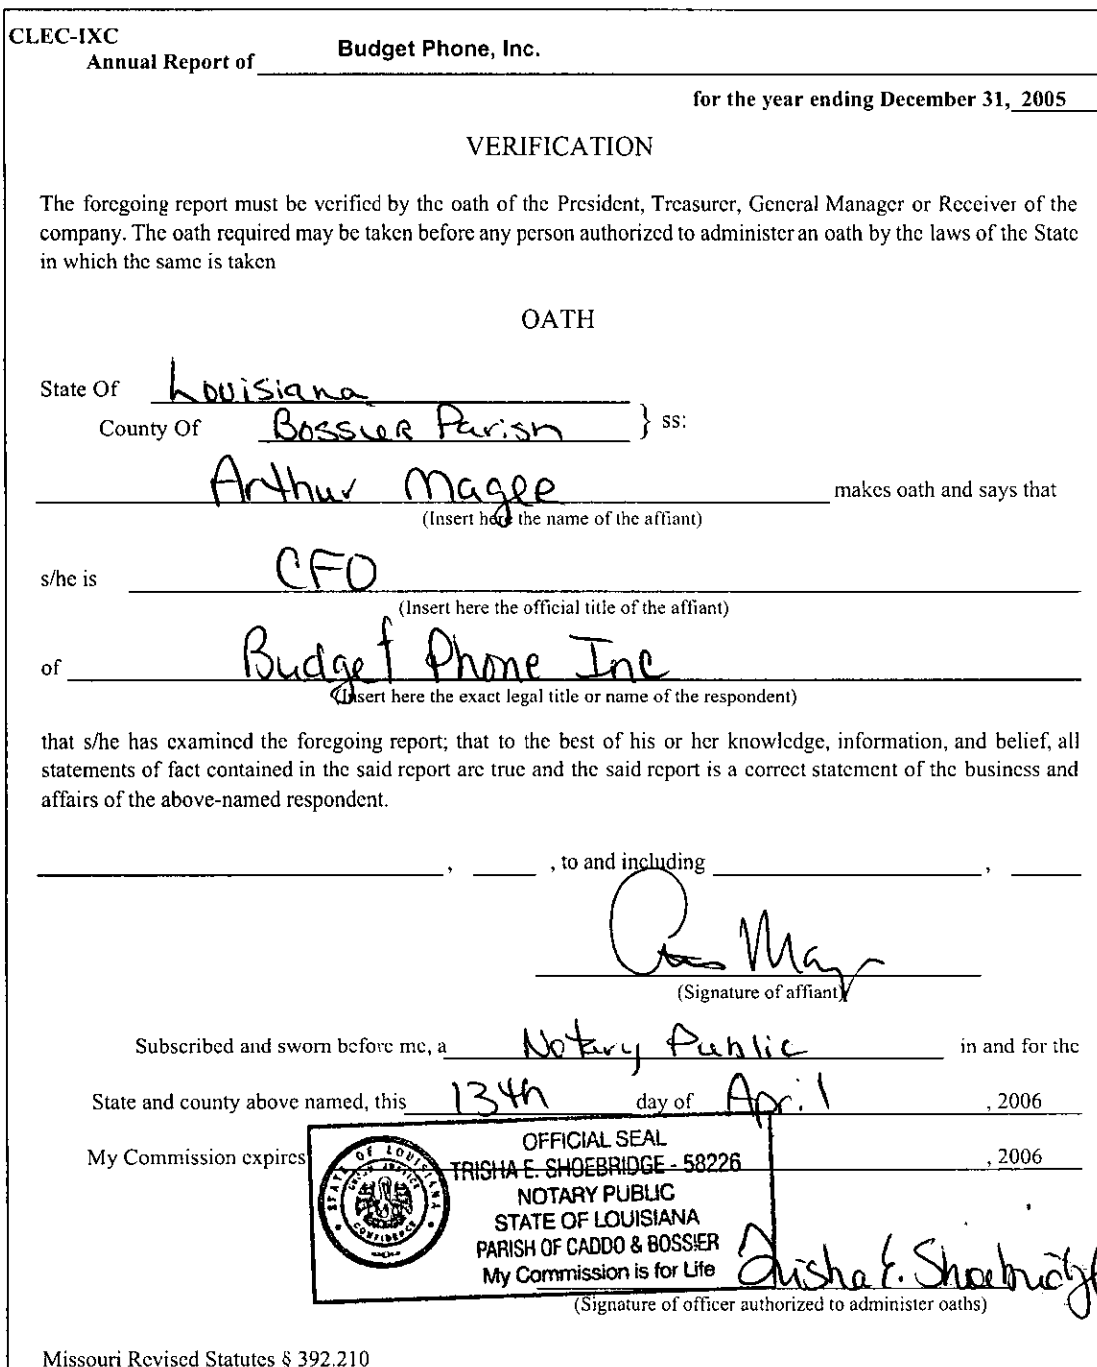 CLEC-IXC
Annual Report of Budget Phone, Inc.
for the year ending December 31, 2005
VERIFICATION
The foregoing report must be verified by the oath of the President, Treasurer, General Manager or Receiver of the
company. The oath required may be taken before any person authorized to administer an oath by the laws of the State
in which the same is taken
OATH
State Of Louisiana
County Of Bossier Parish } ss:
Arthur Magee makes oath and says that
(Insert here the name of the affiant)
s/he is CFO
(Insert here the official title of the affiant)
of Budget Phone Inc
(Insert here the exact legal title or name of the respondent)
that s/he has examined the foregoing report; that to the best of his or her knowledge, information, and belief, all
statements of fact contained in the said report are true and the said report is a correct statement of the business and
affairs of the above-named respondent.
, , to and including ,
(Signature of affiant)
Subscribed and sworn before me, a Notary Public in and for the
State and county above named, this 13th day of April , 2006
My Commission expires , 2006
STATE OF LOUISIANA
UNION JUSTICE
CONFIDENCE
OFFICIAL SEAL
TRISHA E. SHOEBRIDGE - 58226
NOTARY PUBLIC
STATE OF LOUISIANA
PARISH OF CADDO & BOSSIER
My Commission is for Life
Trisha E. Shoebridge
(Signature of officer authorized to administer oaths)
Missouri Revised Statutes § 392.210